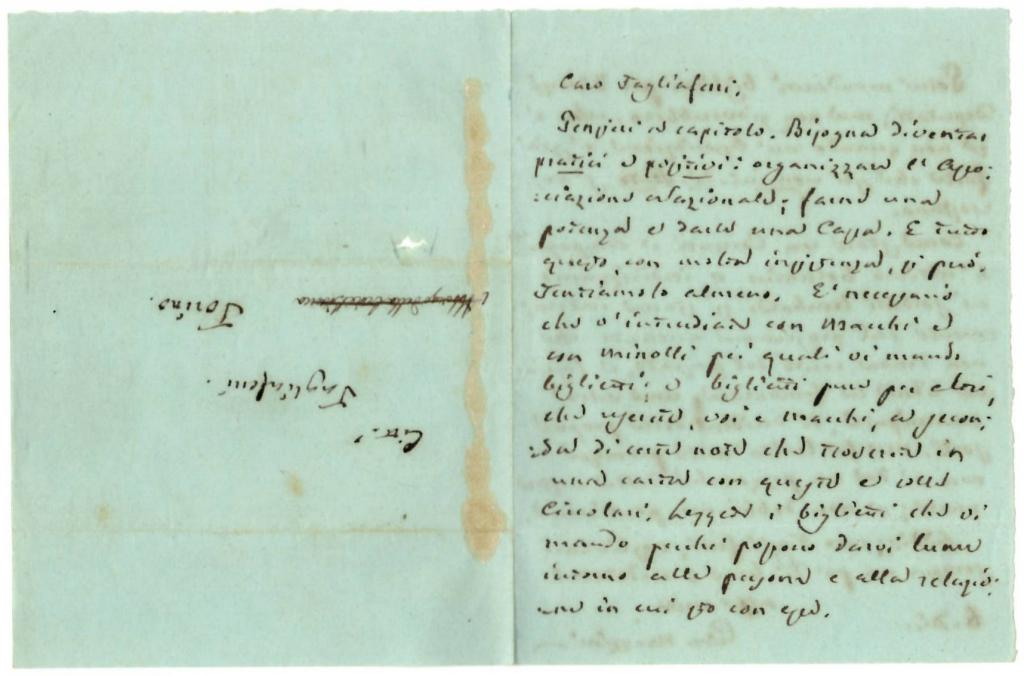 Citt.º
Tagliaferri.
Torino.
Caro Tagliaferri,
Venjiai a capitolo. Bisogna diventar
pratici e positivi: organizzare l'Asso:
:ciazione Nazionale; farne una
potenza e darle una Cassa. E tutto
questo, con molta insistenza, si può.
Tentiamolo almeno. E' necessario
che v'intendiate con Macchi e
con Minolli pei quali vi mando
biglietti; e biglietti pure per altri,
che userete, voi e Macchi, a secon:
:da di certe note che troverete in
una carta con questa e colle
Circolari. Leggete i biglietti che vi
mando perché possono darvi lume
intorno alle persone e alla relazio:
ne in cui sto con esse.